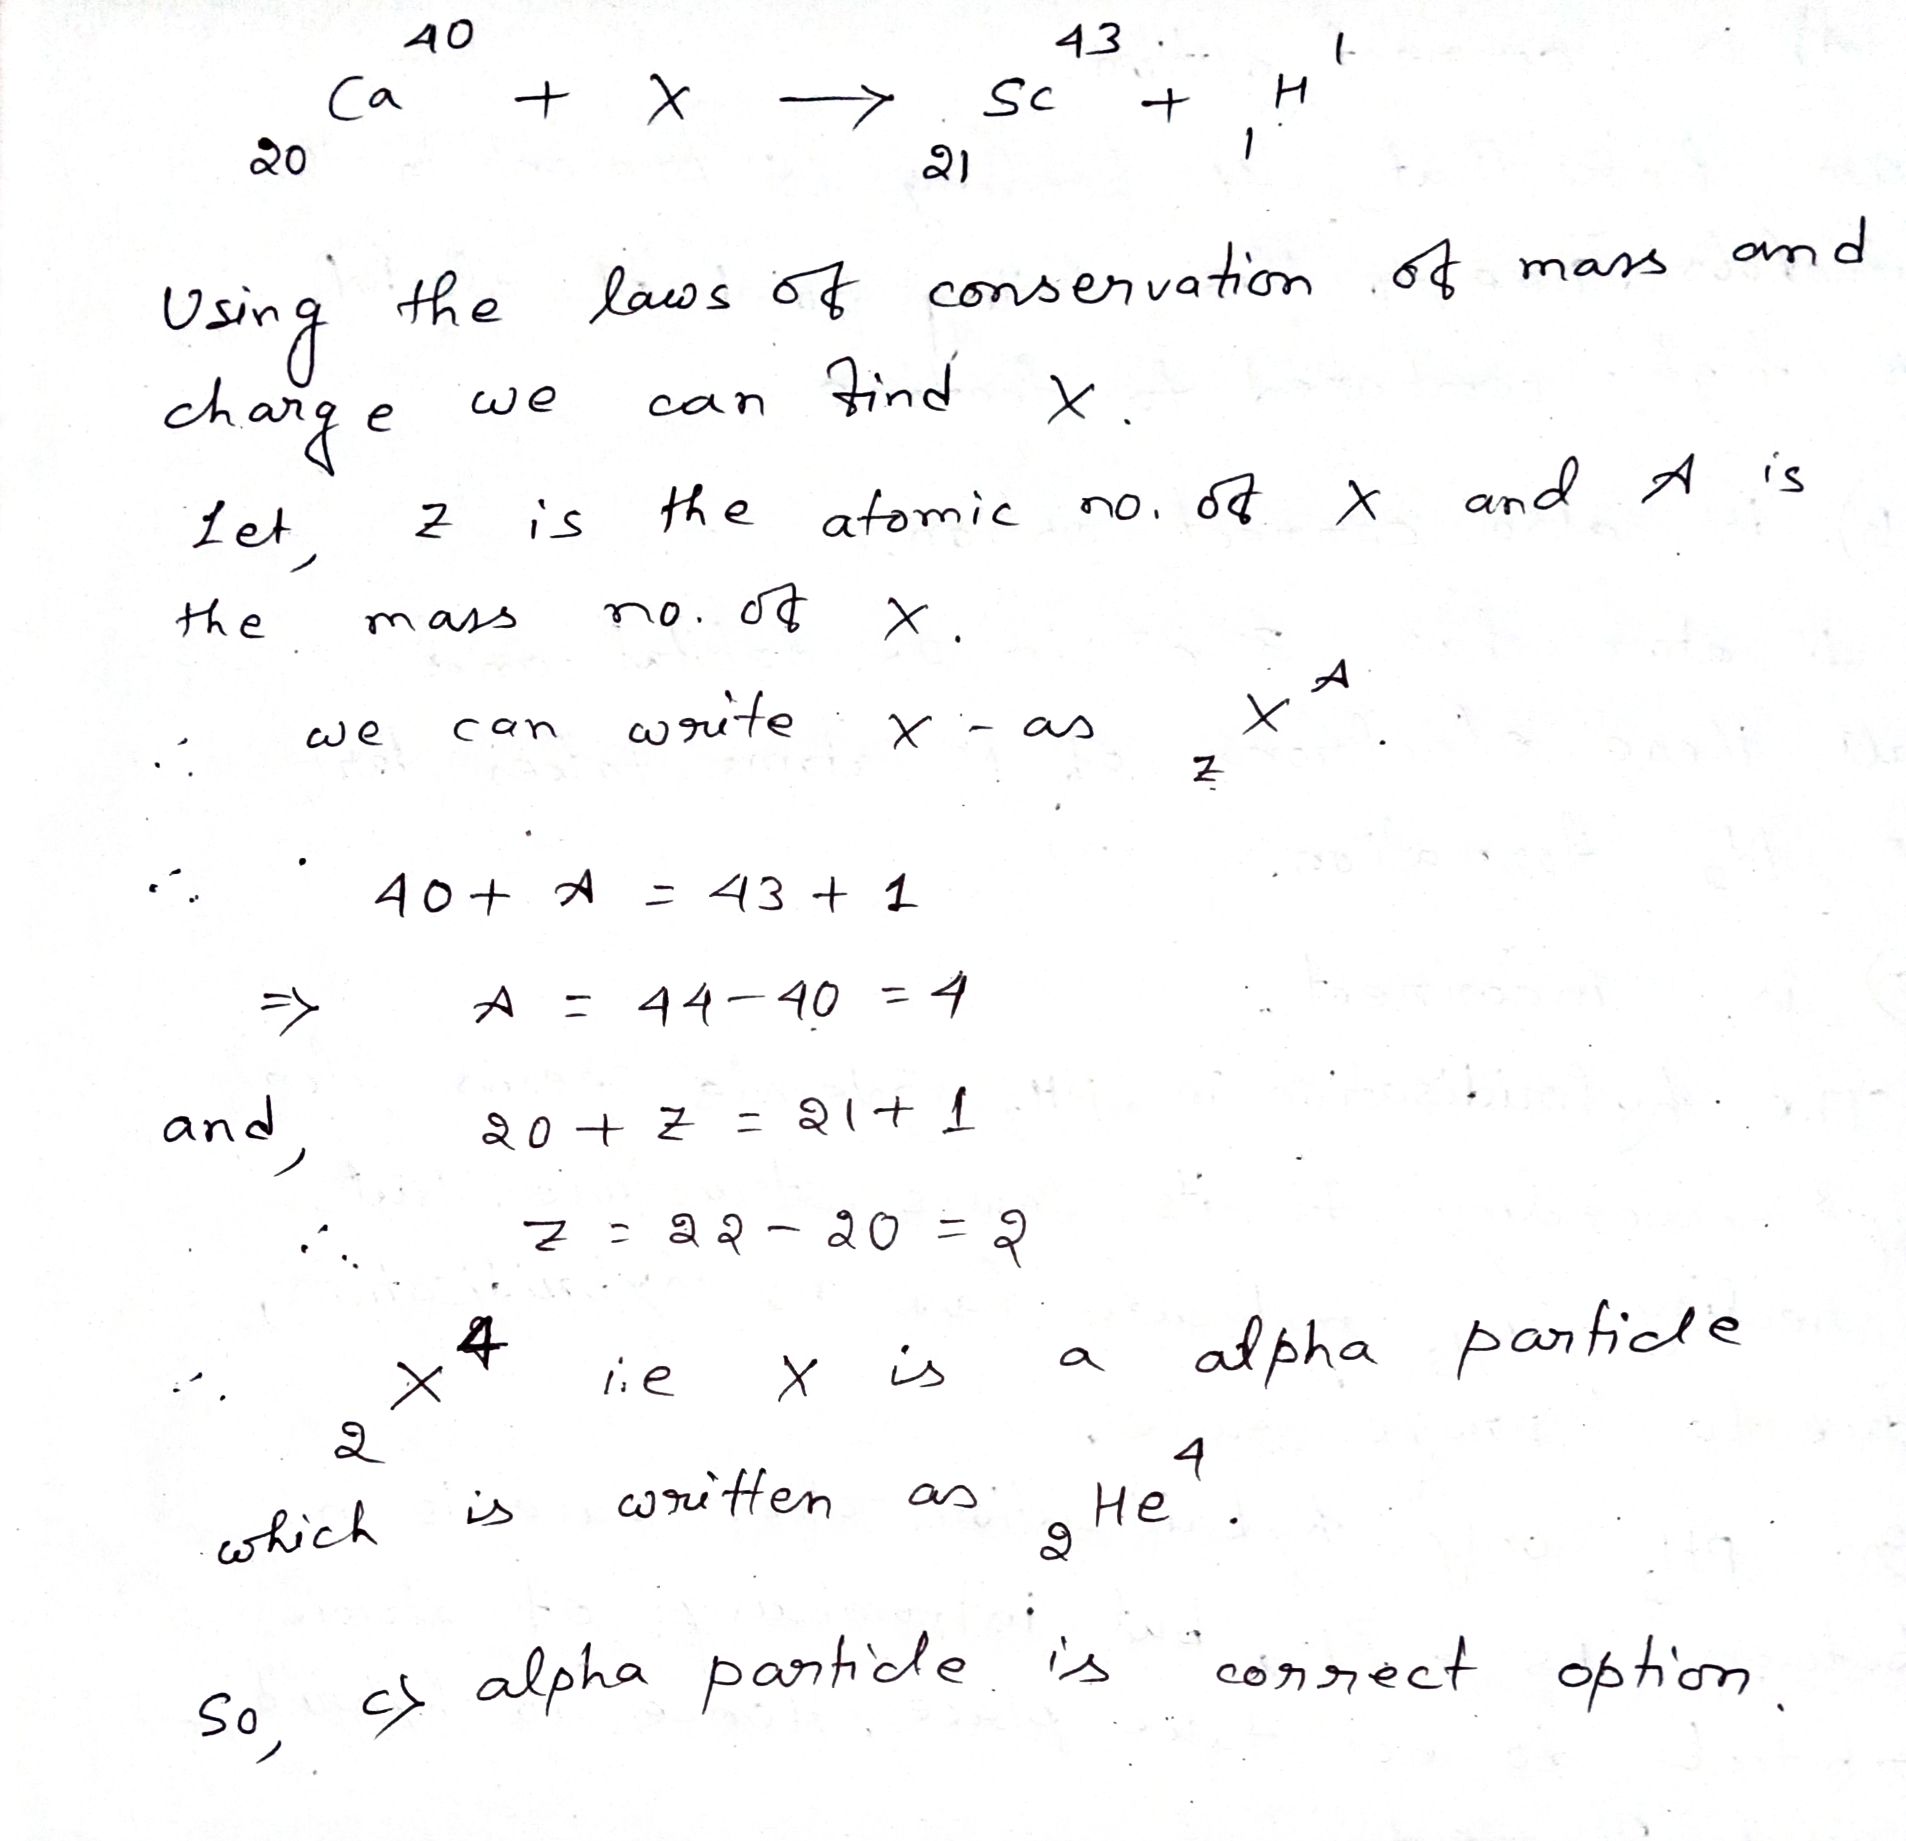 ₂₀Ca⁴⁰ + X → ₂₁Sc⁴³ + ₁H¹
Using the laws of conservation of mass and
charge we can find X.
Let, Z is the atomic no. of X and A is
the mass no. of X.
∴ we can write X - as zXᴬ.
∴ 40 + A = 43 + 1
⇒ A = 44 - 40 = 4
and, 20 + Z = 21 + 1
∴ Z = 22 - 20 = 2
∴ ₂X⁴ i.e X is a alpha particle
which is written as ₂He⁴.
So, c) alpha particle is correct option.